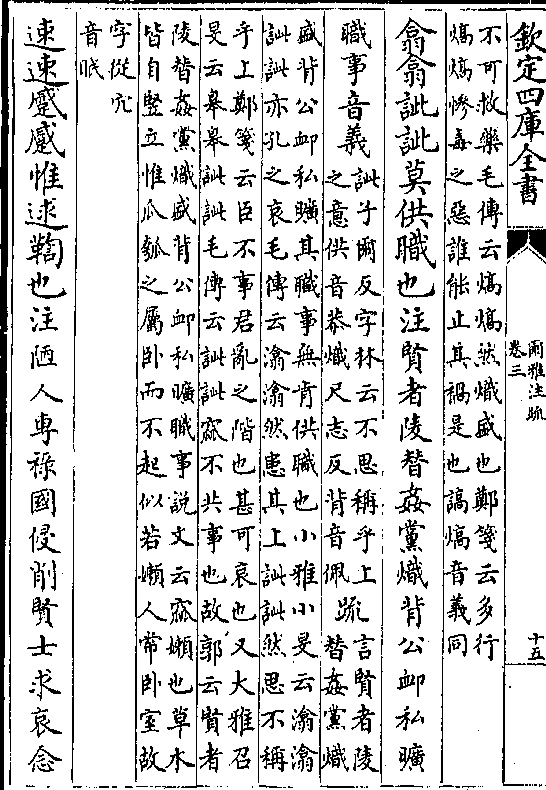 欽定四庫全書
爾雅注疏
卷三
十五
不可救藥毛傳云熇熇然熾盛也鄭箋云多行
熇熇慘毒之惡誰能止其禍是也謞熇音義同
翕翕訿訿莫供職也注賢者陵替姦黨熾背公卹私曠
職事音義
訿子爾反字林云不思稱乎上
之意供音恭熾尺志反背音佩
疏
言賢者陵
替姦黨熾
盛背公卹私曠其職事無肯供職也小雅小旻云潝潝
訿訿亦孔之哀毛傳云潝潝然患其上訿訿然思不稱
乎上鄭箋云臣不事君亂之階也甚可哀也又大雅召
旻云皋皋訿訿毛傳云訿訿窳不共事也故郭云賢者
陵替姦黨熾盛背公卹私曠職事說文云窳嬾也草木
皆自豎立惟瓜瓠之屬卧而不起似若嬾人常卧室故
字從穴
音眠
速速蹙蹙惟逑鞫也注陋人專祿國侵削賢士求哀念